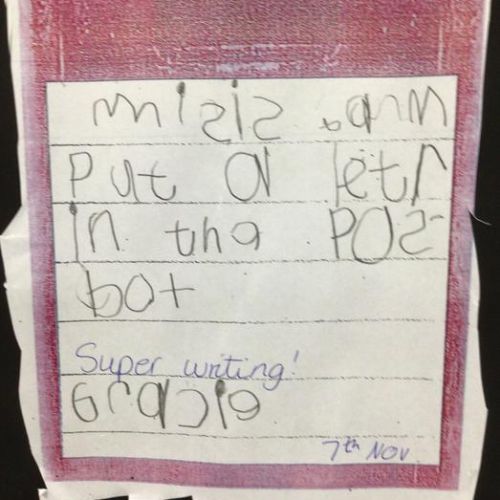 misis
Put a letr
in tha Pos
box
Super writing!
Gracie
7th Nov